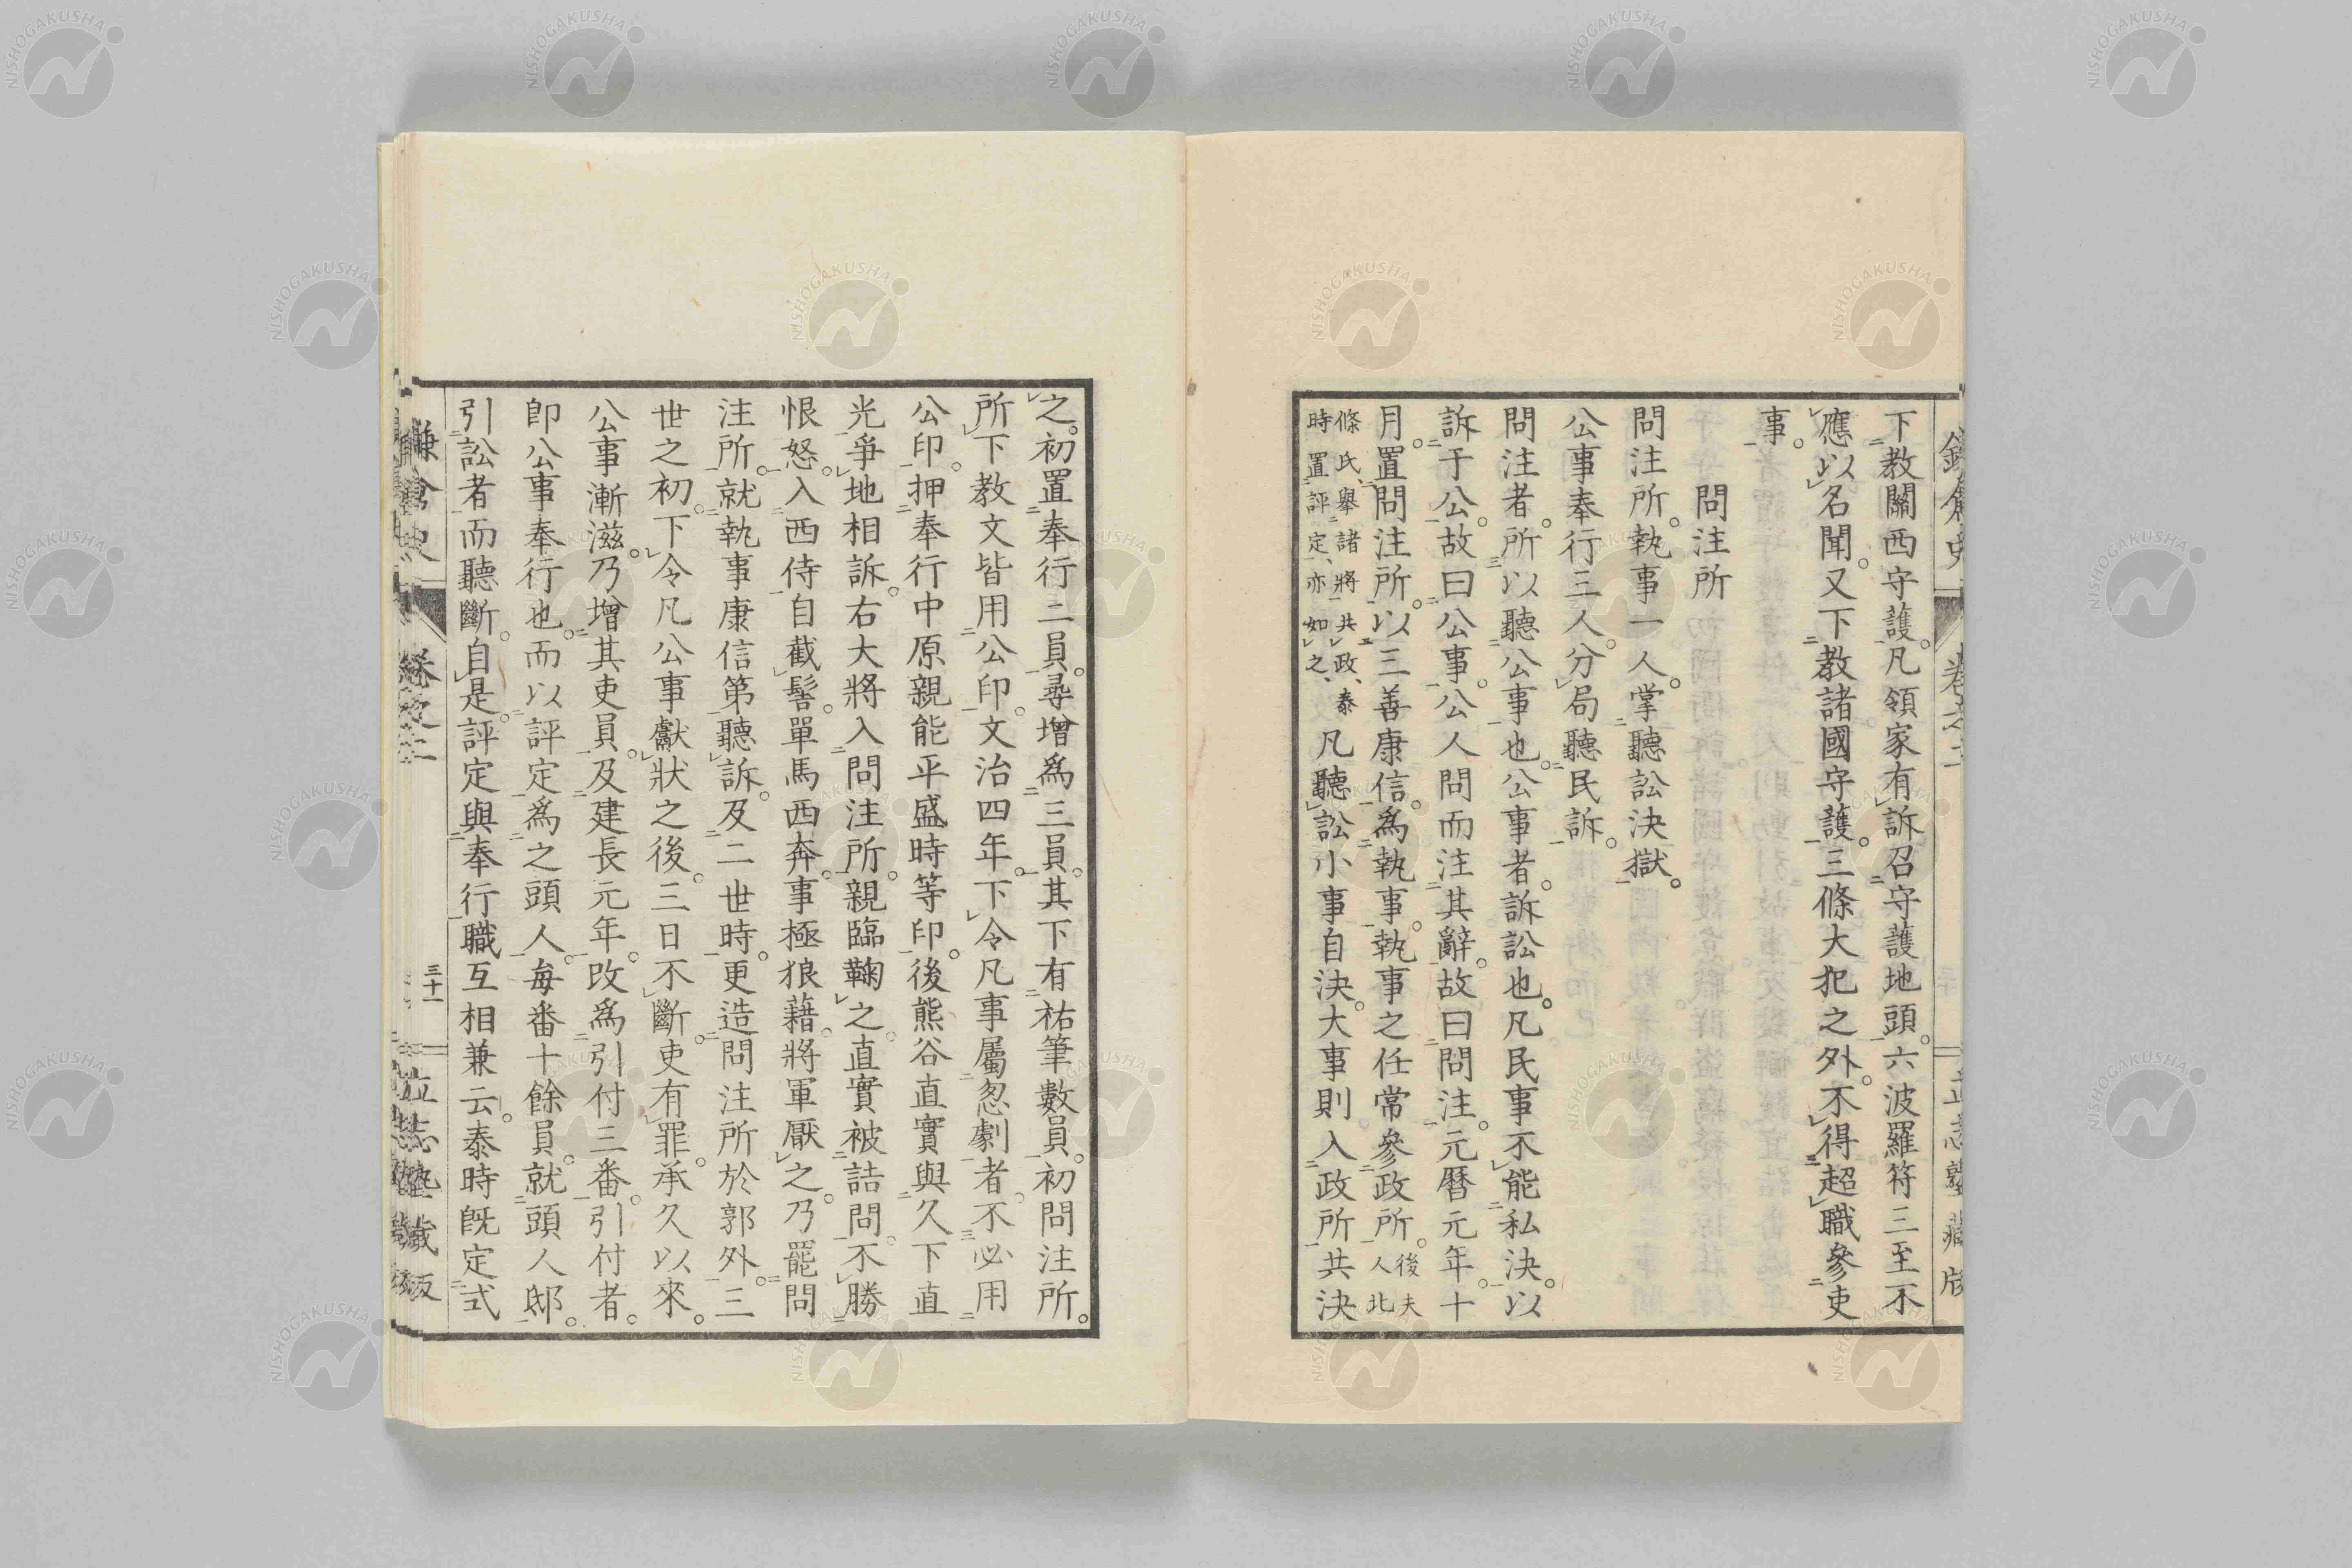 下教關西守護。凡領家有訴召守護地頭。六波羅符三至不
應以名聞。又下教諸國守護。三條大犯之外。不得超職參吏
事。
問注所
問注所。執事一人。掌聽訟決獄。
公事奉行三人。分局聽民訴。
問注者。所以聽公事也。公事者。訴訟也。凡民事不能私決。以
訴于公。故曰公事。公人問而注其辭。故曰問注。元曆元年。十
月。置問注所。以三善康信。爲執事。執事之任常參政所。後夫人北
條氏、舉諸將共政、泰時置評定、亦如之、凡聽訟小事自決。大事則入政所共決
之。初置奉行二員。尋增爲三員。其下有祐筆數員。初問注所。
所下教文皆用公印。文治四年。下令凡事屬怱劇者。不必用
公印。押奉行中原親能平盛時等印。後熊谷直實與久下直
光爭地相訴。右大將入問注所。親臨鞠之。直實被詰問。不勝
恨怒。入西侍自截髻。單馬西奔。事極狼藉。將軍厭之。乃罷問
注所。就執事康信第聽訴。及二世時。更造問注所於郭外。三
世之初。下令凡公事獻狀之後。三日不斷。吏有罪。承久以來。
公事漸滋。乃增其吏員。及建長元年。改爲引付三番。引付者。
卽公事奉行也。而以評定爲之頭人。每番十餘員。就頭人邸。
引訟者而聽斷。自是。評定與奉行職互相兼云。泰時既定式
三十一
NISHOGAKUSHA